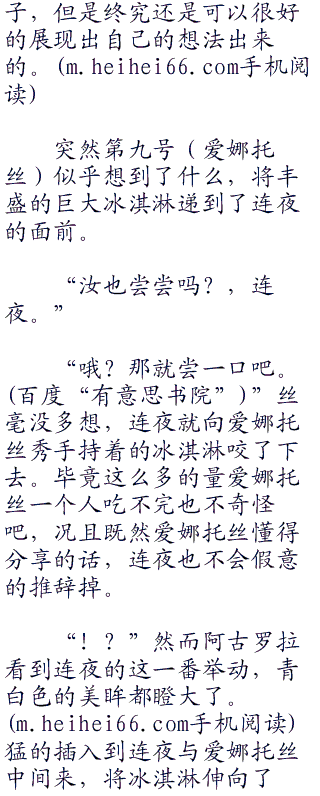 子，但是终究还是可以很好
的展现出自己的想法出来
的。(m.heihei66.com手机阅
读)
突然第九号（爱娜托
丝）似乎想到了什么，将丰
盛的巨大冰淇淋递到了连夜
的面前。
“汝也尝尝吗？，连
夜。”
“哦？那就尝一口吧。
(百度“有意思书院”)”丝
毫没多想，连夜就向爱娜托
丝秀手持着的冰淇淋咬了下
去。毕竟这么多的量爱娜托
丝一个人吃不完也不奇怪
吧，况且既然爱娜托丝懂得
分享的话，连夜也不会假意
的推辞掉。
“！？”然而阿古罗拉
看到连夜的这一番举动，青
白色的美眸都瞪大了。
(m.heihei66.com手机阅读)
猛的插入到连夜与爱娜托丝
中间来，将冰淇淋伸向了